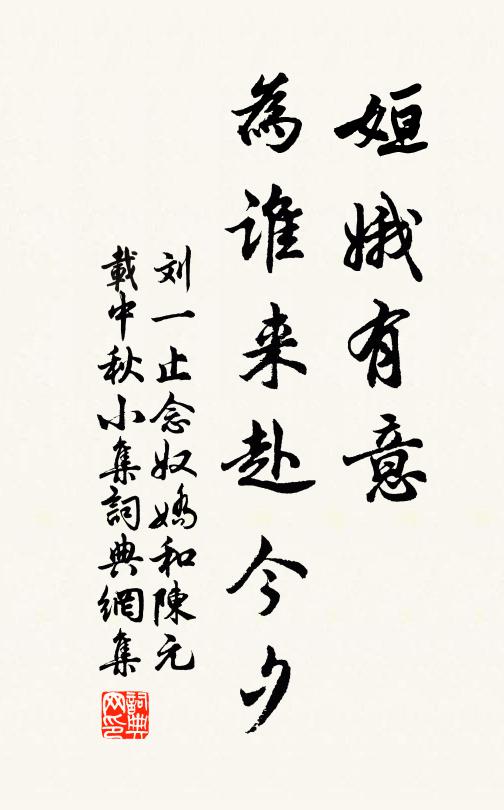 姮娥有意
為谁来赴今夕
刘一止念奴嬌和陳元
載中秋小集詞典網集
詞典网印